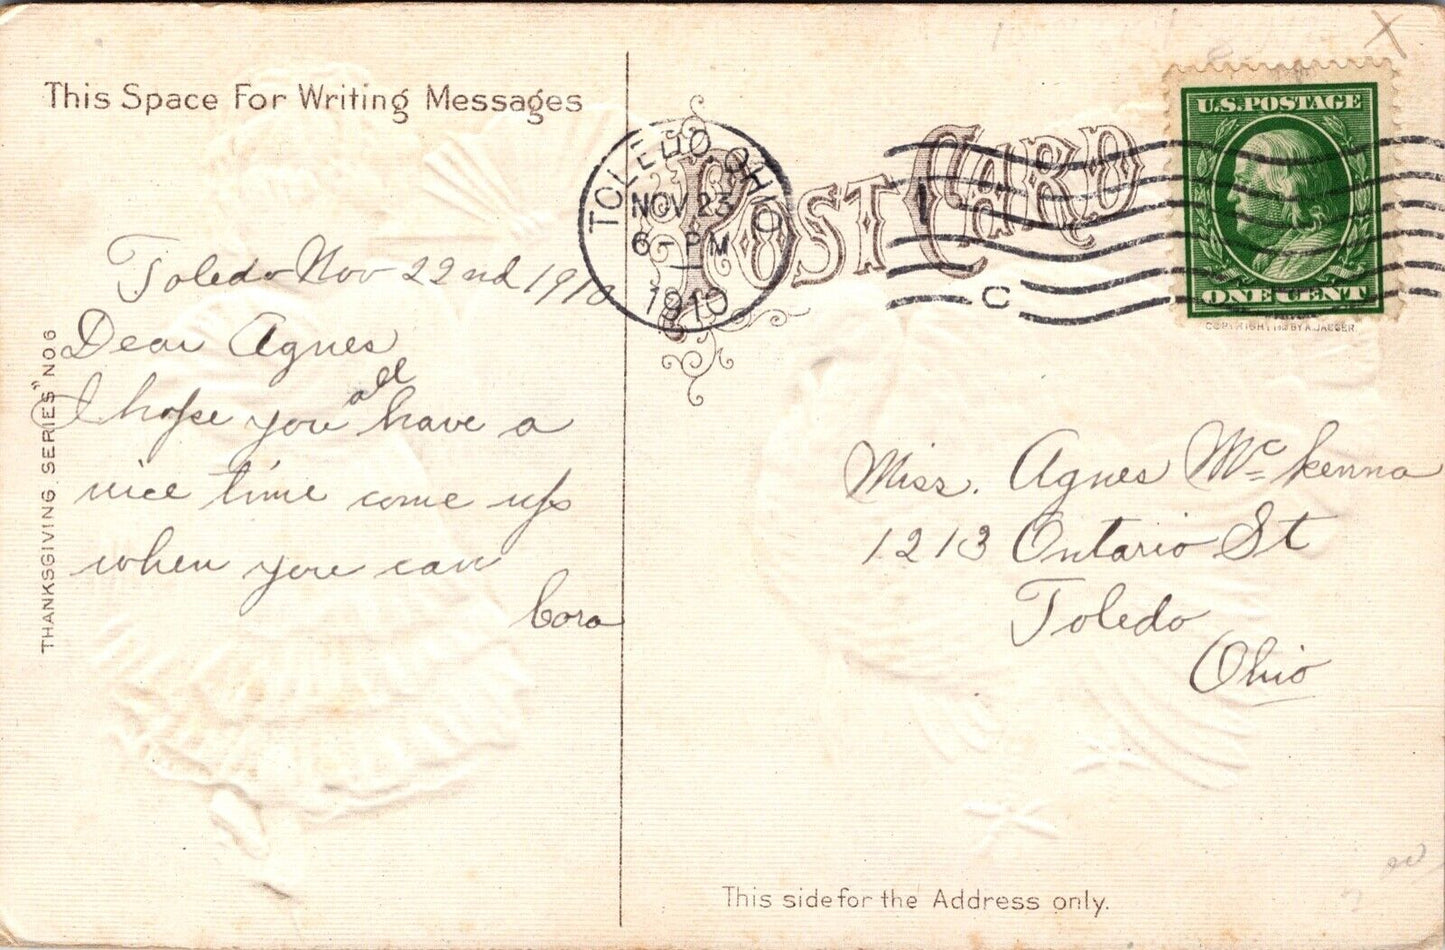 This Space For Writing Messages
Toledo Nov 22nd 1910
Dear Agnes
I hope you all have a
nice time come up
when you can
Cora
THANKSGIVING SERIES" NO 6
POST CARD
TOLEDO, OHIO
NOV 23
6 - PM
1910
1
C
U.S. POSTAGE
ONE CENT
COPYRIGHT BY A. JAEGER
Miss. Agnes McKenna
1213 Ontario St
Toledo
Ohio
This side for the Address only.
X